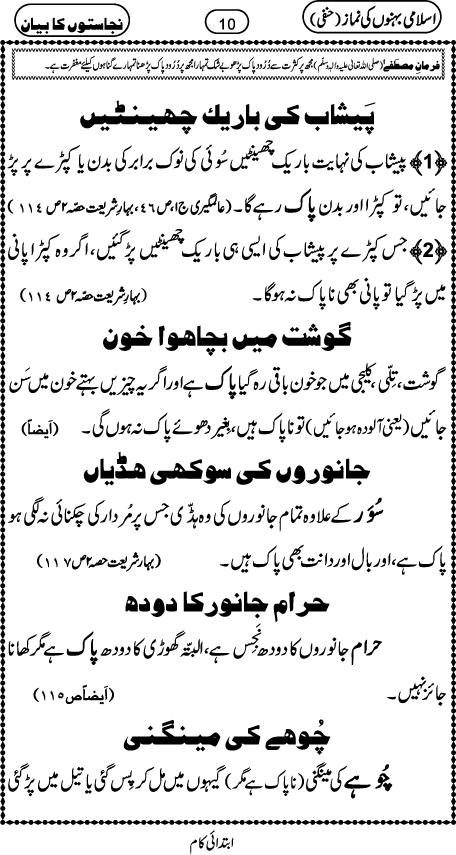 اسلامی بہنوں کی نماز (حنفی)
10
نجاستوں کا بیان
فرمانِ مصطفےٰ (صلی اللہ تعالیٰ علیہ والہٖ وسلم) مجھ پر کثرت سے دُرُود پاک پڑھو بے شک تمہارا مجھ پر دُرُود پاک پڑھنا تمہارے گناہوں کیلئے مغفرت ہے۔
پَیشاب کی باریک چھینٹیں
﴿1﴾ پیشاب کی نہایت باریک چھینٹیں سُوئی کی نوک برابر کی بدن یا کپڑے پر پڑ
جائیں، تو کپڑا اور بدن پاک رہے گا۔ (عالمگیری ج۱، ص ۴۶، بہارِ شریعت حصّہ ۲ ص ۱۱۴)
﴿2﴾ جس کپڑے پر پیشاب کی ایسی ہی باریک چھینٹیں پڑ گئیں، اگر وہ کپڑا پانی
میں پڑ گیا تو پانی بھی ناپاک نہ ہوگا۔ (بہارِ شریعت حصّہ ۲ ص ۱۱۴)
گوشت میں بچاھوا خون
گوشت، تِلّی، کلیجی میں جو خون باقی رہ گیا پاک ہے اور اگر یہ چیزیں بہتے خون میں سَن
جائیں (یعنی آلودہ ہو جائیں) تو ناپاک ہیں، بِغیر دھوئے پاک نہ ہوں گی۔ (اَیضاً)
جانوروں کی سوکھی ھڈّیاں
سُوَر کے علاوہ تمام جانوروں کی وہ ہڈّی جس پر مُردار کی چکنائی نہ لگی ہو
پاک ہے، اور بال اور دانت بھی پاک ہیں۔ (بہارِ شریعت حصہ ۲ ص ۱۱۷)
حرام جانور کا دودھ
حرام جانوروں کا دودھ نَجِس ہے، البتّہ گھوڑی کا دودھ پاک ہے مگر کھانا
جائز نہیں۔ (اَیضاً ص ۱۱۵)
چُوھے کی مینگنی
چُوہے کی مینگنی (ناپاک ہے مگر) گیہوں میں مل کر پس گئی یا تیل میں پڑ گئی
ابتدائی کام